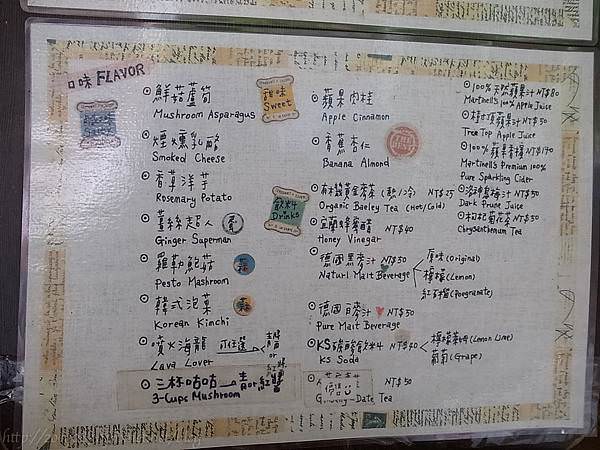 口味 FLAVOR
鮮菇蘆筍
Mushroom Asparagus
煙燻乳酪
Smoked Cheese
香草洋芋
Rosemary Potato
薑絲超人
Ginger Superman
羅勒鮑菇
Pesto Mashroom
韓式泡菜
Korean Kimchi
噴火海龍 可任選 青醬 or 紅醬
Lava Lover
三杯咕咕 青or紅醬
3-Cups Mushroom
甜味
Sweet
蘋果肉桂
Apple Cinnamon
香蕉杏仁
Banana Almond
THE BEST
飲料
Drinks
有機黃金麥茶 (熱/冷) NT$25
Organic Baeley Tea (Hot/Cold)
宜蘭蜂蜜醋 NT$40
Honey Vinegar
德國黑麥汁 NT$50
Naturl Malt Beverage
原味(Original)
檸檬(Lemon)
紅石榴(Poegranate)
德國白麥汁 NT$50
Pure Malt Beverage
KS碳酸飲料 NT$40
KS Soda
檸檬萊姆(Lemon Lime)
葡萄(Grape)
NT$50
Date Tea
100%天然蘋果汁 NT$80
Martinell's 100% Apple Juice
樹頂蘋果汁 NT$50
Tree Top Apple Juice
100%蘋果香檳 NT$170
Martinell's Premium 100%
Pure Sparkling Cider
NT$50
Dark Prune Juice
枸杞菊花茶 NT$50
Chrysanthemum Tea